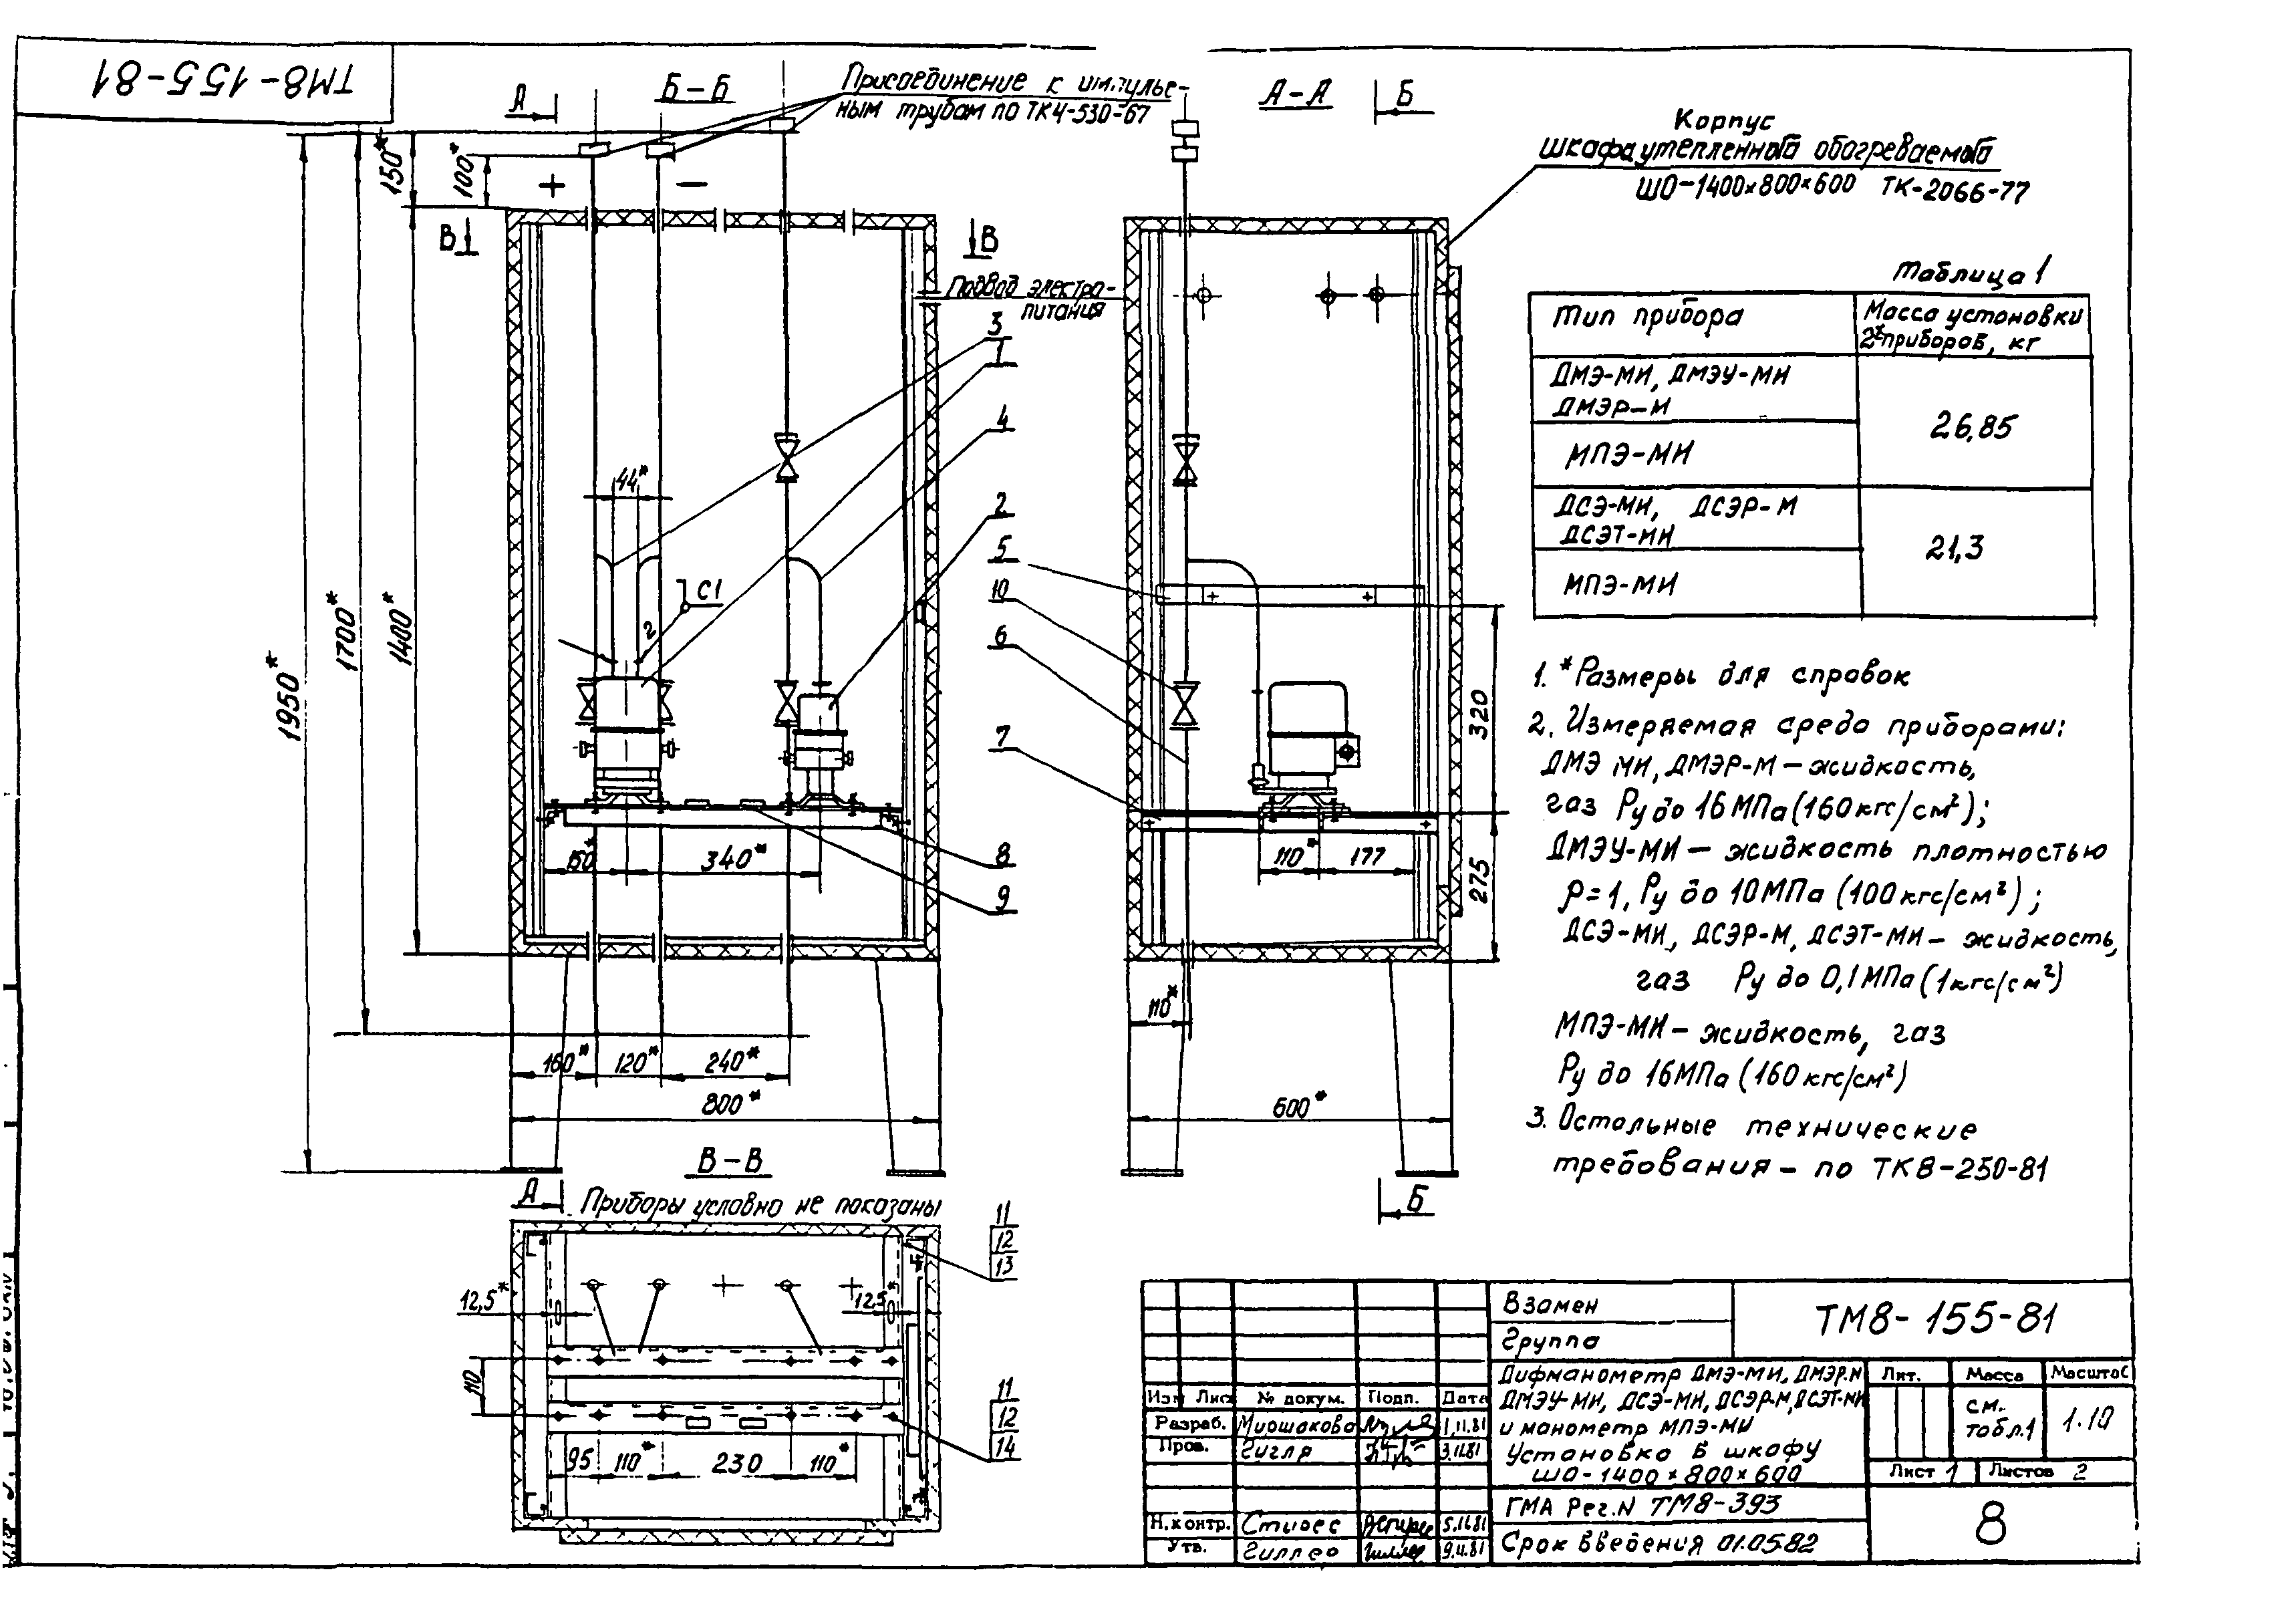 ТМ8-155-81
А
Б-Б
Присоединение к импульс-
ным трубам по ТК4-530-67
А-А
Б
Корпус
шкафа утепленного обогреваемого
ШО-1400×800×600 ТК-2066-77
150*
100*
+
−
В
В
Подвод электро-
питания
3
1
4
2
5
10
6
7
8
9
44*
С1
2
1950*
1700*
1400*
150*
340*
160*
120*
240*
800*
320
275
110*
177
110*
600*
Таблица 1
Тип прибора
Масса установки
2х приборов, кг
ДМЭ-МИ, ДМЭУ-МИ
ДМЭР-М
26,85
МПЭ-МИ
ДСЭ-МИ, ДСЭР-М
ДСЭТ-МИ
21,3
МПЭ-МИ
1. *Размеры для справок
2. Измеряемая среда приборами:
ДМЭ МИ, ДМЭР-М – жидкость,
газ Ру до 16 МПа (160 кгс/см²);
ДМЭУ-МИ – жидкость плотностью
ρ=1, Ру до 10 МПа (100 кгс/см²);
ДСЭ-МИ, ДСЭР-М, ДСЭТ-МИ – жидкость,
газ Ру до 0,1 МПа (1 кгс/см²)
МПЭ-МИ – жидкость, газ
Ру до 16 МПа (160 кгс/см²)
3. Остальные технические
требования – по ТК8-250-81
В-В
А
Б
Приборы условно не показаны
11
12
13
12,5*
12,5*
110
11
12
14
95
110*
230
110*
Взамен
Группа
ТМ8-155-81
Дифманометр ДМЭ-МИ, ДМЭР-М
ДМЭУ-МИ, ДСЭ-МИ, ДСЭР-М, ДСЭТ-МИ
и манометр МПЭ-МИ
Установка в шкафу
ШО-1400×800×600
Лит.
Масса
Масштаб
см.
табл.1
1:10
Лист 1
Листов 2
Изм Лист
№ докум.
Подп.
Дата
Разраб.
Пров.
Гигля
Н.контр.
Утв.
ГМА Рег.N ТМ8-393
Срок введения 01.05.82
8